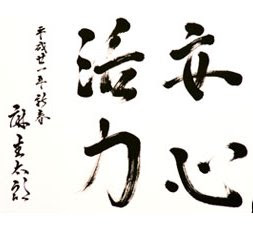 安心
活力
平成廿一年新春
麻生太郎